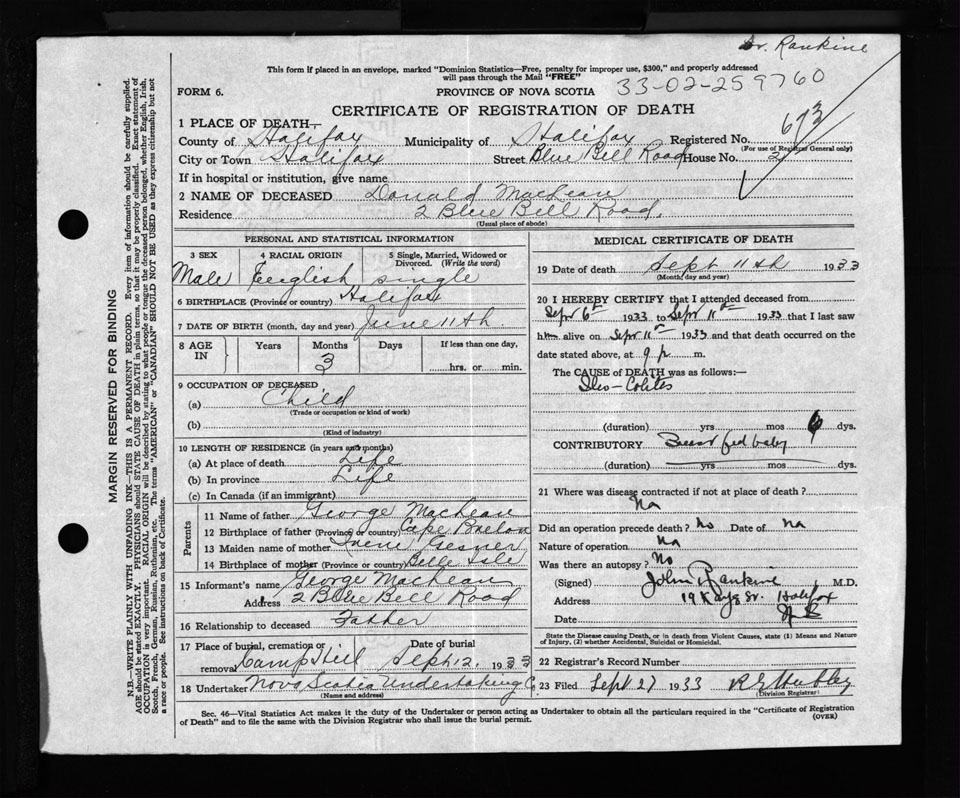 Dr. Rankine
This form if placed in an envelope, marked "Dominion Statistics—Free, penalty for improper use, $300," and properly addressed
will pass through the Mail "FREE"
33-02-259760
FORM 6.
PROVINCE OF NOVA SCOTIA
CERTIFICATE OF REGISTRATION OF DEATH
673
1 PLACE OF DEATH—
County of Halifax Municipality of Halifax Registered No.
(For use of Registrar General only)
City or Town Halifax Street Blue Bell Road House No. 2
If in hospital or institution, give name
2 NAME OF DECEASED Donald MacLean
Residence 2 Blue Bell Road.
(Usual place of abode)
PERSONAL AND STATISTICAL INFORMATION
3 SEX 4 RACIAL ORIGIN 5 Single, Married, Widowed or
Divorced. (Write the word)
Male English single
6 BIRTHPLACE (Province or country) Halifax
7 DATE OF BIRTH (month, day and year) June 11th
8 AGE IN Years Months Days If less than one day,
3 hrs. or min.
9 OCCUPATION OF DECEASED
(a) Child
(Trade or occupation or kind of work)
(b)
(Kind of industry)
10 LENGTH OF RESIDENCE (in years and months)
(a) At place of death Life
(b) In province Life
(c) In Canada (if an immigrant)
Parents
11 Name of father George MacLean
12 Birthplace of father (Province or country) Cape Breton
13 Maiden name of mother Irene Gesner
14 Birthplace of mother (Province or country) Belle Isle
15 Informant's name George MacLean
Address 2 Blue Bell Road
16 Relationship to deceased Father
17 Place of burial, cremation or Date of burial
removal Camp Hill Sept 12, 1933
18 Undertaker Nova Scotia Undertaking Co.
(Name and address)
MEDICAL CERTIFICATE OF DEATH
19 Date of death Sept 11th 1933
(Month, day and year)
20 I HEREBY CERTIFY that I attended deceased from
Sept 6th 1933 to Sept 11th 1933 that I last saw
him alive on Sept 11th 1933 and that death occurred on the
date stated above, at 9 p. m.
The CAUSE OF DEATH was as follows:—
Ileo-Colitis
(duration) yrs mos 6 dys.
CONTRIBUTORY Breast fed baby
(duration) yrs mos dys.
21 Where was disease contracted if not at place of death?
Na
Did an operation precede death? No Date of Na
Nature of operation Na
Was there an autopsy? No
(Signed) John Rankine, M.D.
Address Halifax
Date N.S.
State the Disease causing Death, or in death from Violent Causes, state (1) Means and Nature
of Injury, (2) whether Accidental, Suicidal or Homicidal.
22 Registrar's Record Number
23 Filed Sept 27 1933
(Division Registrar)
Sec. 46—Vital Statistics Act makes it the duty of the Undertaker or person acting as Undertaker to obtain all the particulars required in the "Certificate of Registration
of Death" and to file the same with the Division Registrar who shall issue the burial permit.
(OVER)
MARGIN RESERVED FOR BINDING
N.B.—WRITE PLAINLY WITH UNFADING INK—THIS IS A PERMANENT RECORD. Every item of information should be carefully supplied.
AGE should be stated EXACTLY. PHYSICIANS should STATE CAUSE OF DEATH in plain terms, so that it may be properly classified. Exact statement of
OCCUPATION is very important. RACIAL ORIGIN will be described by stating to what people or tongue the deceased person belonged, whether English, Irish,
Scotch, French, German, Russian, Ruthenian, etc. The terms "AMERICAN" or "CANADIAN" SHOULD NOT BE USED as they express citizenship but not
a race or people. See instructions on back of Certificate.